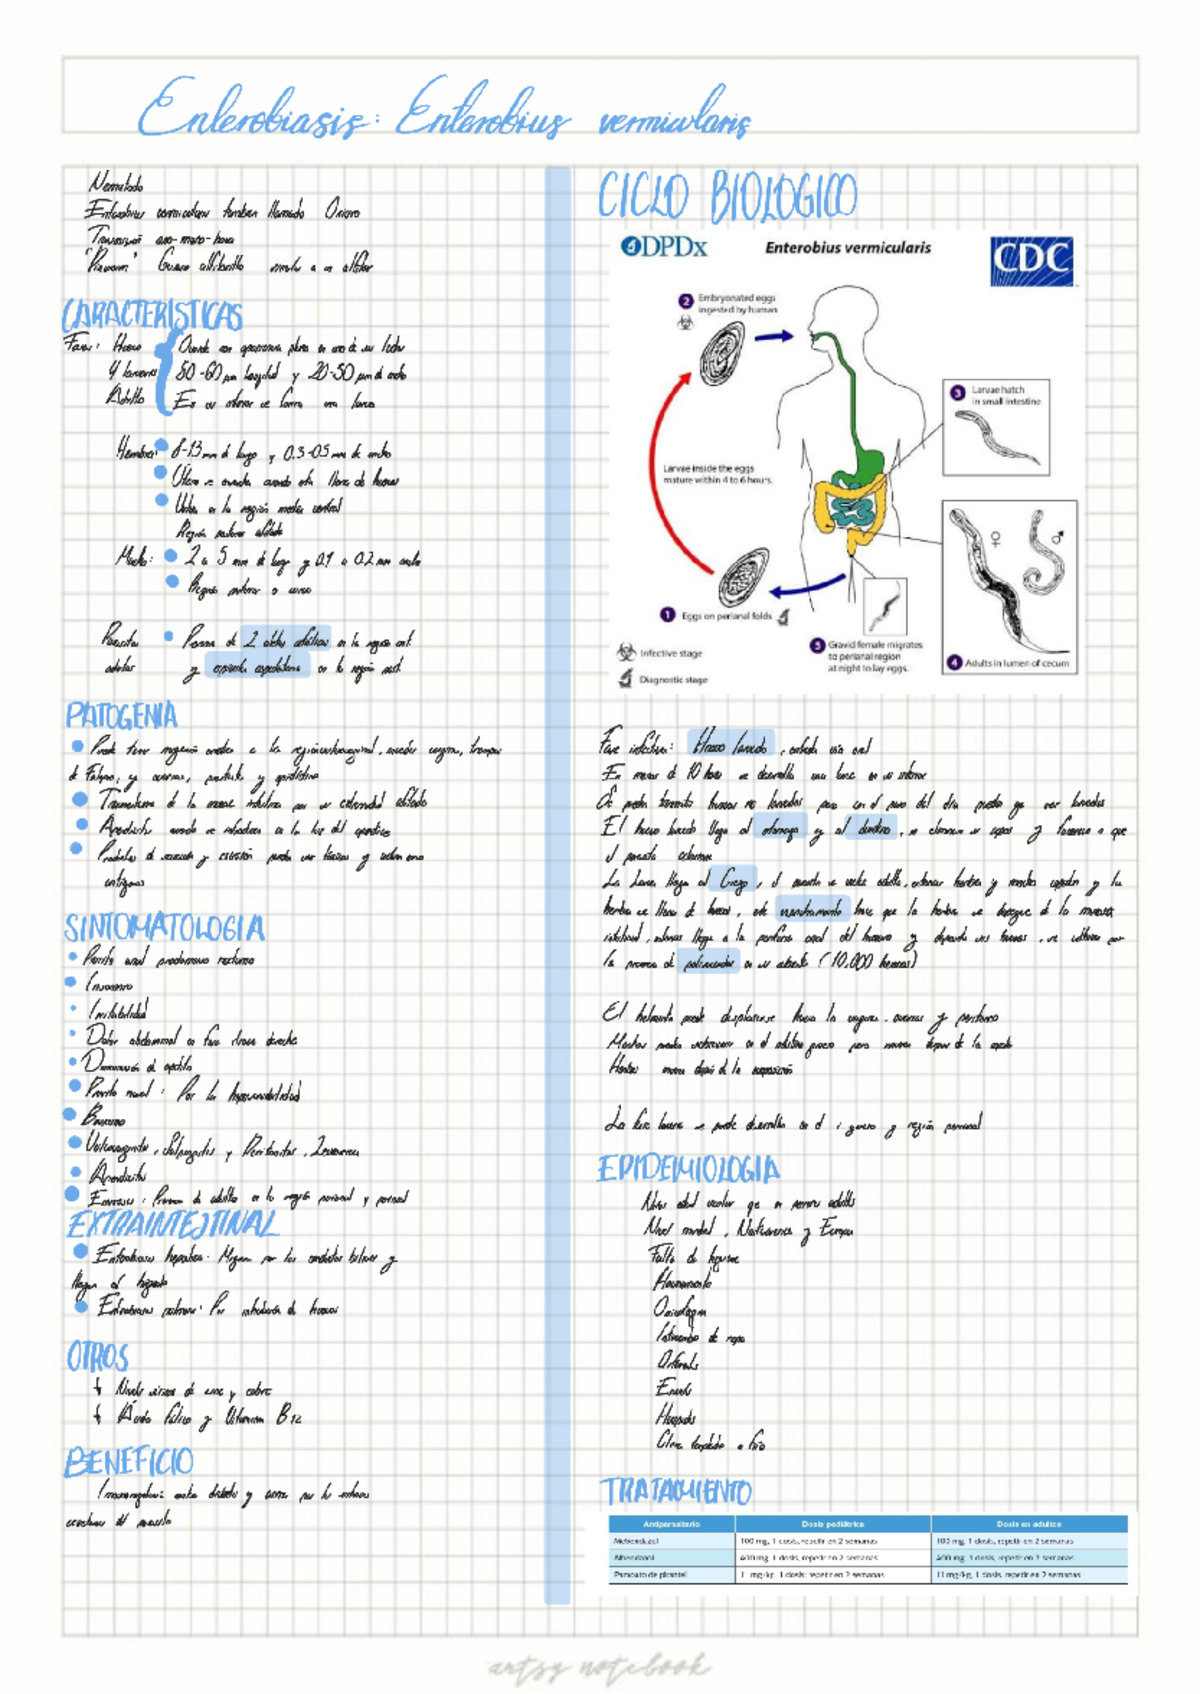 Enterobiasis: Enterobius vermicularis
Nematodo
Enterobius vermicularis tambien llamado Oxiuro
Transmisión ano-mano-boca
"Pinworm" Gusano alfilerillo similar a un alfiler
CARACTERÍSTICAS
Fases: Huevo
4 larvarias
Adulto
50-60 µm longitud y 20-30 µm de ancho
En su interior se forma una larva
Hembra: 8-13 mm de largo y 0.3-0.5 mm de ancho
Útero se ensancha cuando está lleno de huevos
Vulva en la región media ventral
Región posterior afilada
Macho: 2 a 5 mm de largo y 0.1 a 0.2 mm ancho
Parásitos
adultos
Poseen de 2 aletas cefálicas en la región ant.
y en la región post
PATOGENIA
Puede tener migración a la región
de Falopio, y ovarios,
Apendicitis cuando se introducen en la luz del apéndice
Productos de secreción y excreción pueden ser tóxicos y actúan como
antígenos
SINTOMATOLOGIA
Prurito anal predominio nocturno
Insomnio
Irritabilidad
Dolor abdominal en fosa iliaca derecha
Disminución de apetito
Prurito nasal: Por la hipersensibilidad
Bruxismo
Vulvovaginitis, Salpingitis y Peritonitis,
Apendicitis
Enuresis: Presencia de adultos en la región perianal y perineal
EXTRAINTESTINAL
Enterobiasis hepática: Migran por los conductos biliares y
llegan al hígado
Enterobiasis pulmonar: Por inhalación de huevos
OTROS
↓ Niveles séricos de zinc y cobre
↓ Ácido fólico y Vitamina B12
BENEFICIO
CICLO BIOLOGICO
DPDx
Enterobius vermicularis
CDC
2 Embryonated eggs
ingested by human
3 Larvae hatch
in small intestine
Larvae inside the eggs
mature within 4 to 6 hours.
♀ ♂
1 Eggs on perianal folds
5 Gravid female migrates
to perianal region
at night to lay eggs.
4 Adults in lumen of cecum
Infective stage
Diagnostic stage
Fase infectiva: Huevo larvado, entrada vía oral
En menos de 10 horas se desarrolla una larva en su interior
Se pueden transmitir huevos no larvados pero con el paso del día pueden ya ser larvados
El huevo larvado llega al estómago y al duodeno, se eliminan su capas y favorece a que
el parásito eclosione
La larva llega al Ciego, el parásito se vuelve adulto, entonces hembras y machos copulan y la
hembra se llena de huevos, este ensanchamiento hace que la hembra se despegue de la mucosa
intestinal, entonces llega a la periferia anal del humano y deposita sus huevos, se adhieren por
la presencia de en su cubierta (10,000 huevos)
El helminto puede desplazarse hacia la vagina, ovarios y peritoneo
Machos pueden sobrevivir en el intestino grueso pero mueren después de la cópula
Hembras mueren después de la oviposición
La fase larvaria se puede desarrollar en el i. grueso y región perianal
EPIDEMIOLOGIA
Niños edad escolar que en menores adultos
Nivel mundial, Norteamérica y Europa
Falta de higiene
Hacinamiento
Onicofagia
Intercambio de ropa
Orfanatos
Escuelas
Hospitales
Clima templado o frío
TRATAMIENTO
Antiparasitario Dosis pediátrica Dosis en adultos
Mebendazol 100 mg, 1 dosis, repetir en 2 semanas 100 mg, 1 dosis, repetir en 2 semanas
Albendazol 400 mg, 1 dosis, repetir en 2 semanas 400 mg, 1 dosis, repetir en 2 semanas
Pamoato de pirantel 11 mg/kg, 1 dosis; repetir en 2 semanas 11 mg/kg, 1 dosis, repetir en 2 semanas
artsy notebook